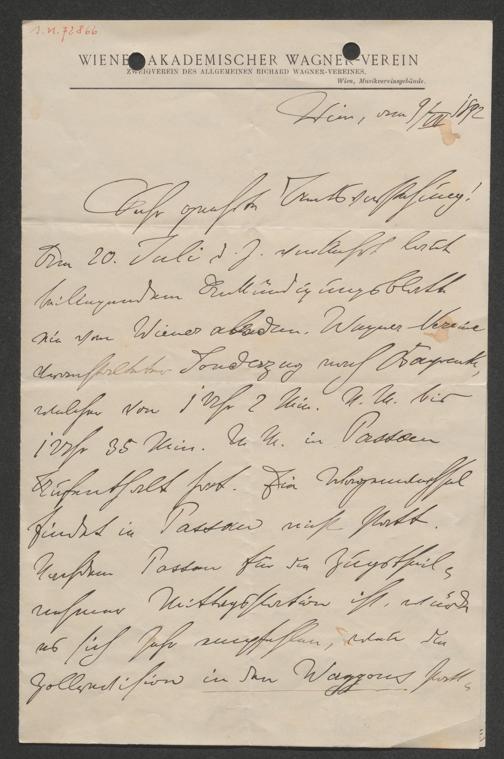 I.N. 72866
WIENER AKADEMISCHER WAGNER-VEREIN
ZWEIGVEREIN DES ALLGEMEINEN RICHARD WAGNER-VEREINES.
Wien, Musikvereinsgebäude.
Wien, vom 9/VII 1892
Sehr geehrte Amtsvorstehung!
Am 20. Juli d. J. verkehrt laut
beiliegendem Ankündigungsblatte
ein vom Wiener akadem. Wagner Vereine
veranstalteter Sonderzug nach Bayreuth,
welcher von 1 Uhr 2 Min. N. M. bis
1 Uhr 35 Min. N. M. in Passau
Aufenthalt hat. Ein Wagenwechsel
findet in Passau nicht statt.
Nachdem Passau für die Zugstheil-
nehmer Mittagsstation ist, würde
es sich sehr empfehlen, wenn die
Zollrevision in den Waggons statt-